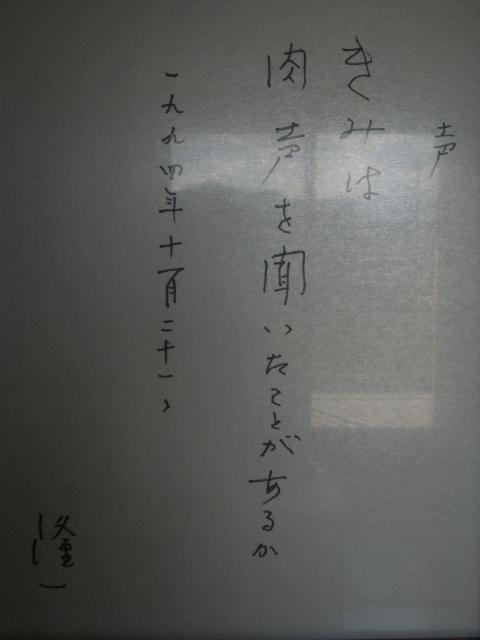 声
きみは
肉声を聞いたことがあるか
一九九四年十一月二十一
隆一